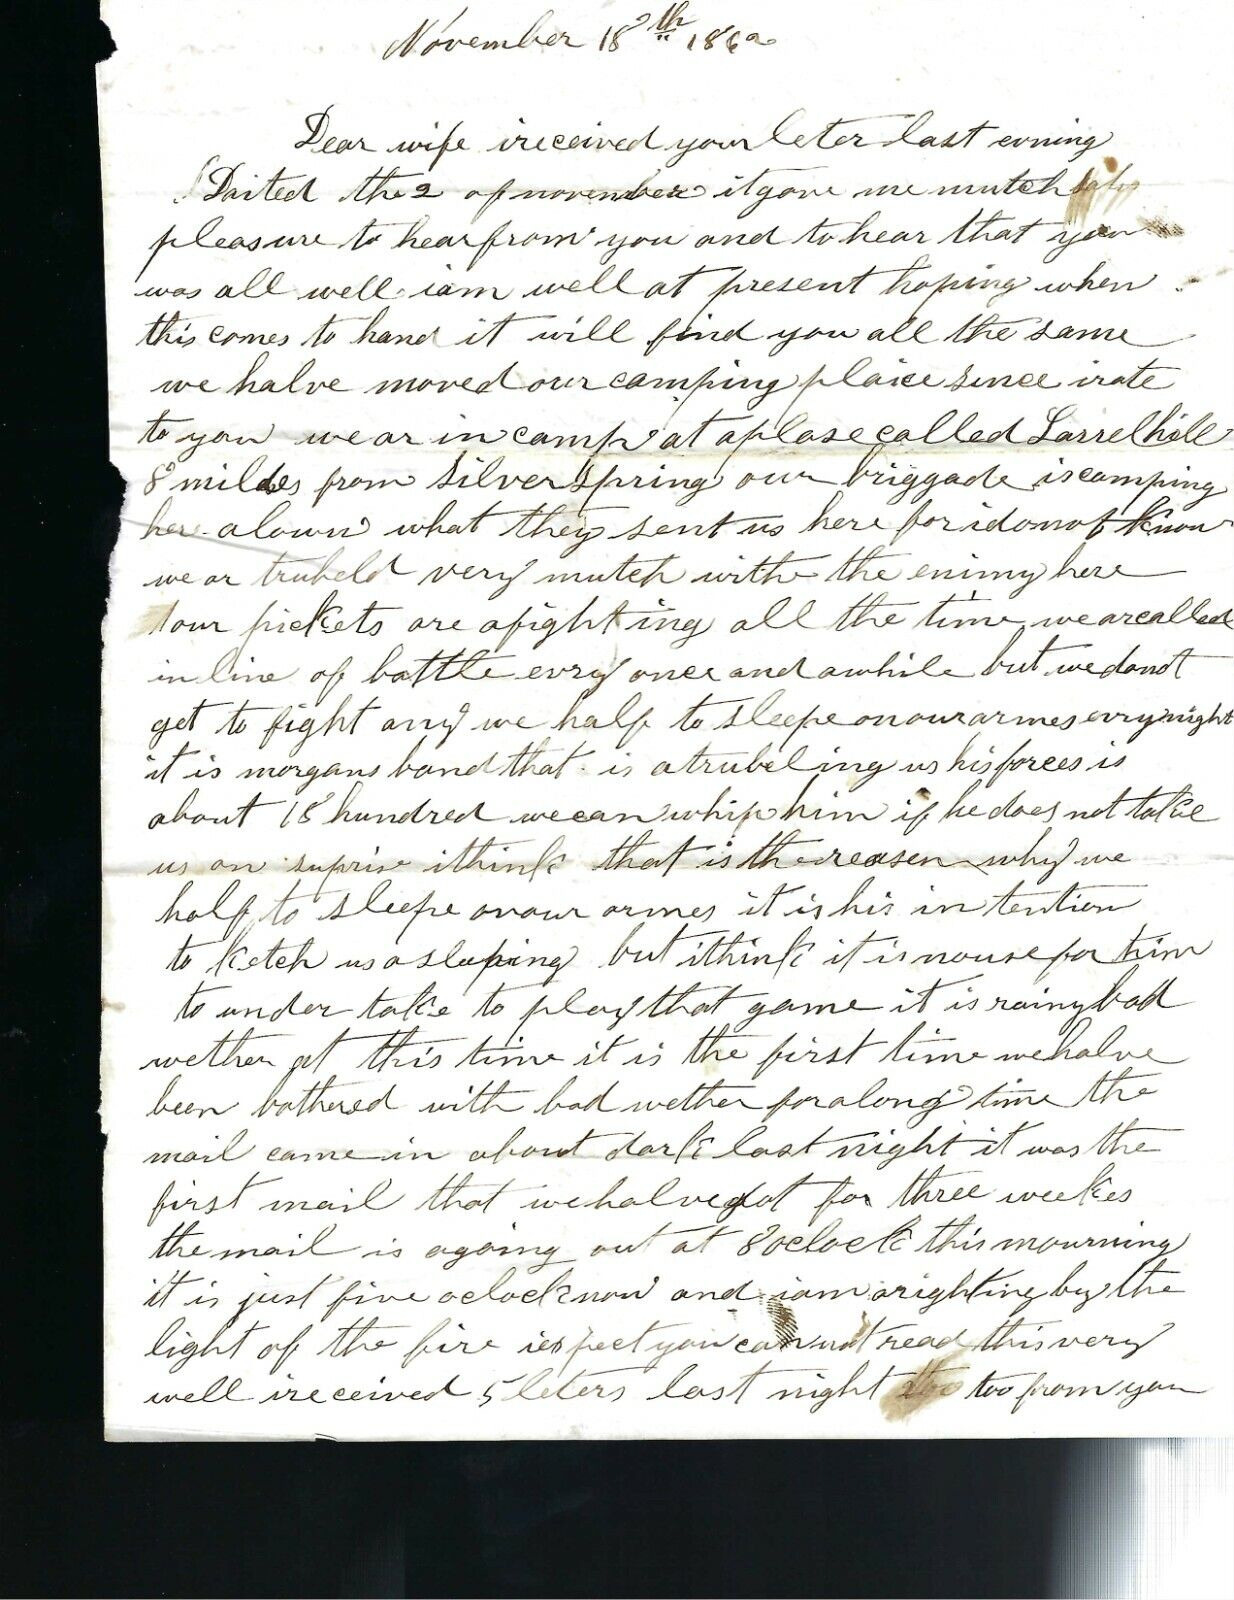 November 18th 1862
Dear wife i received your leter last evning
Daited the 2 of november it gave me mutch
pleasure to hear from you and to hear that you
was all well iam well at present hoping when
this comes to hand it will find you all the same
we halve moved our camping plaice since i rate
to you we ar in camp at a plase called Larrel hill
8 miles from Silver Spring our briggade is camping
her alown what they sent us here for i do not know
we ar trubeld very mutch withe the enimy here
our pickets are a fighting all the time we ar called
in line of battle evry once and awhile but we do not
get to fight any we half to sleepe on our armes evry night
it is morgans band that is a trubeling us his forces is
about 18 hundred we can whip him if he does not takle
us on supris i think that is the reasen why we
half to sleepe on our armes it is his intention
to ketch us a sleping but i think it is no use for him
to under take to play that game it is rainy bad
wether at this time it is the first time we halve
been bothered with bad wether for a long time the
mail came in about dark last night it was the
first mail that we halve got for three weekes
the mail is agoing out at 8 oclock this mourning
it is just five oclock now and iam a righting by the
light of the fire i expect you can not read this very
well i received 5 leters last night too from you